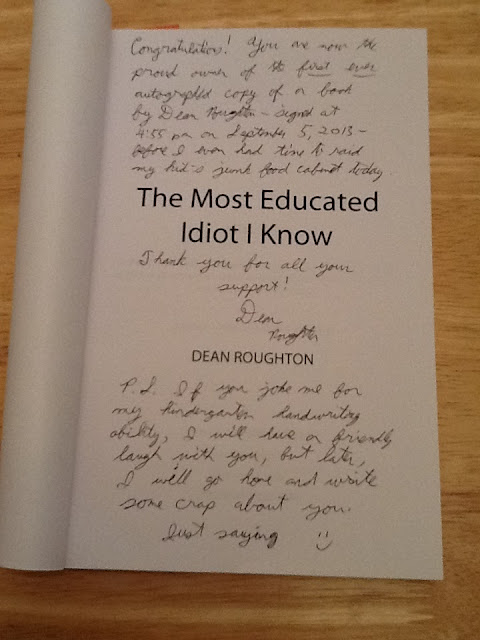 Congratulations! You are now the
proud owner of the first ever
autographed copy of a book
by Dean Roughton - signed at
4:55 pm on September 5, 2013 -
before I even had time to raid
my kid's junk food cabinet today
The Most Educated
Idiot I Know
Thank you for all your
support!
Dean
Roughton
DEAN ROUGHTON
P.S. If you joke me for
my kindergarten handwriting
ability, I will have a friendly
laugh with you, but later,
I will go home and write
some crap about you.
Just saying :)